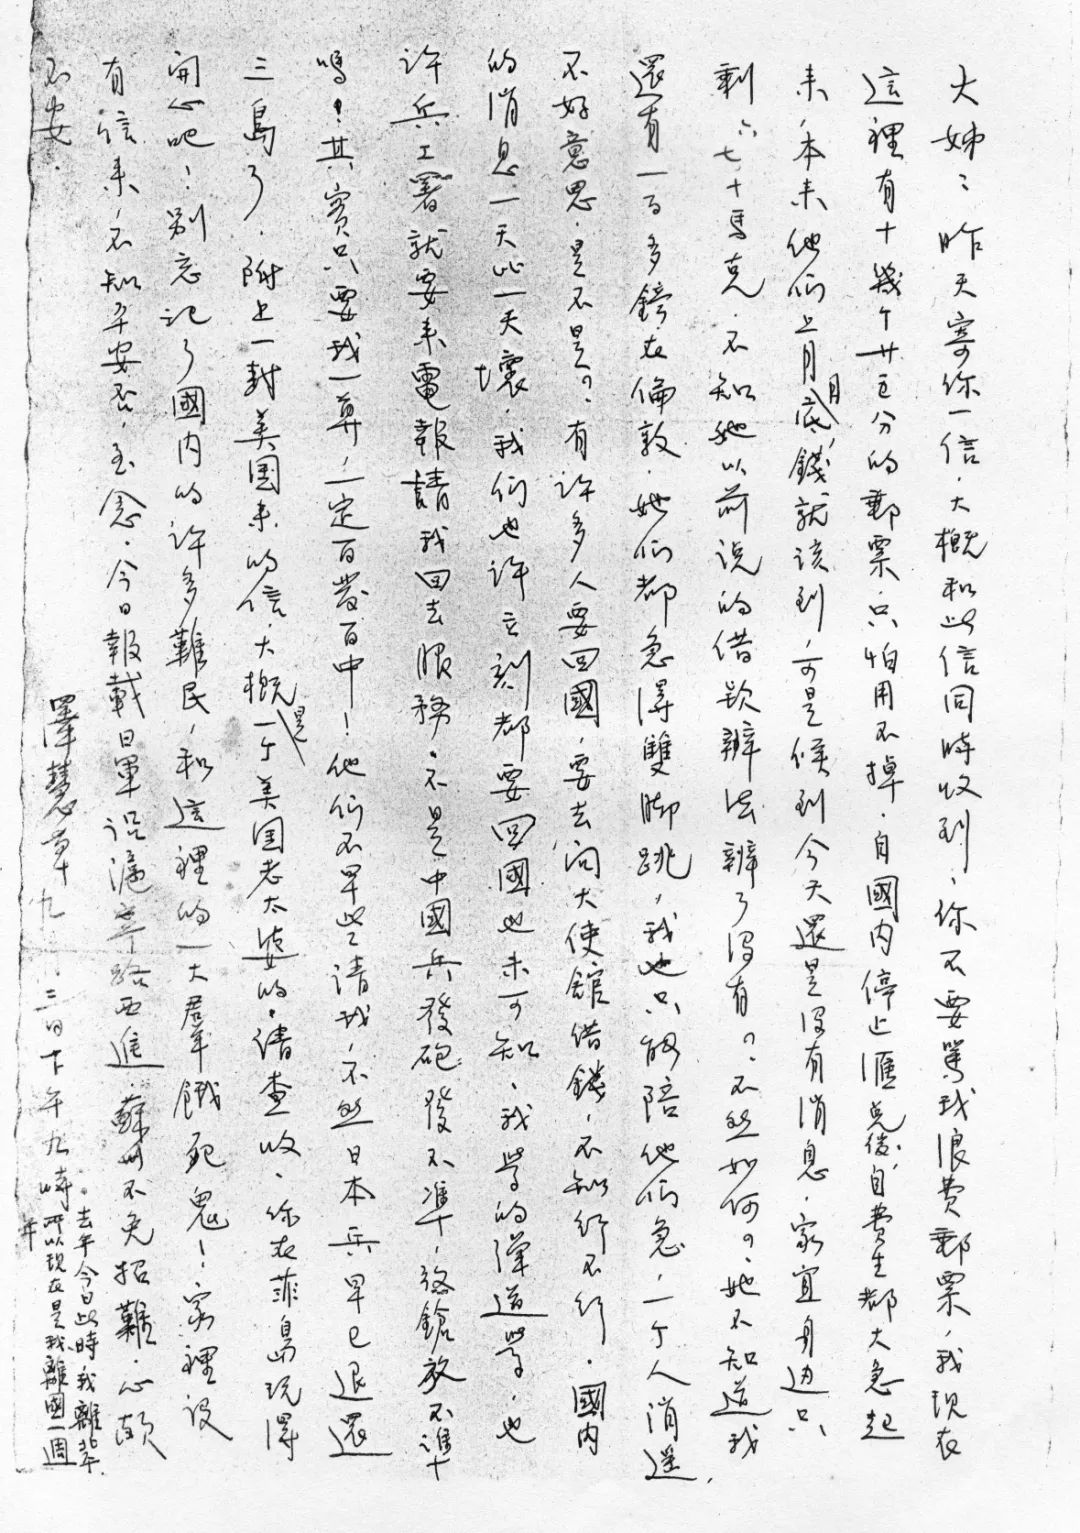 大姊：昨天寄你一信．大概和此信同時收到．你不要罵我浪費郵票，我現在
這裡有十幾个廿五分的郵票．只怕用不掉．自國內停止匯兑後，自費生都大急起
來，本來他們上月月底，錢就該到，可是候到今天還是沒有消息．家宜身边只
剩六七十馬克．不知她以前说的借款辦法辦了沒有？不然如何？她不知道我
還有一百多鎊在倫敦．她们都急得雙脚跳，我也只能陪他们急，一个人消遥，
不好意思．是不是？有许多人要回國，要去问大使館借錢，不知行不行．國內
的消息一天比一天壞，我们也许立刻都要回國也未可知、我學的彈道學，也
许兵工署就要来電報請我回去服務．不是中國兵發砲發不準，放鎗放不準
嗎！其實只要我一算，一定百發百中！他们不早些请我，不然日本兵早已退還
三島了．附上一封美国来的信，大概是一个美国老太婆的．请查收．你在菲島玩得
開心吧！别忘记了國内的许多難民，和這裡的一大羣餓死鬼！家裡沒
有信来，不知平安否，至念．今日報載日軍沿滬寧路西進．蘇州不免招難．心頗
不安．
澤慧草 九 三日下午九時
去年今日此時，我離華．
所以现在是我離國一週
年